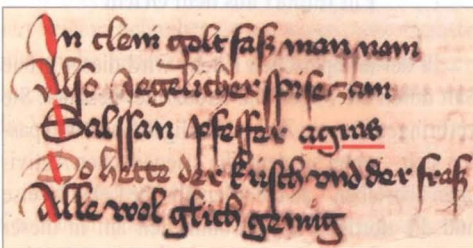 In clein golt faß man nam
Also Jegelicher spise zam
Salssan pfeffer agras
Do hette der kusch vnd der fraß
Alle wol glich genug